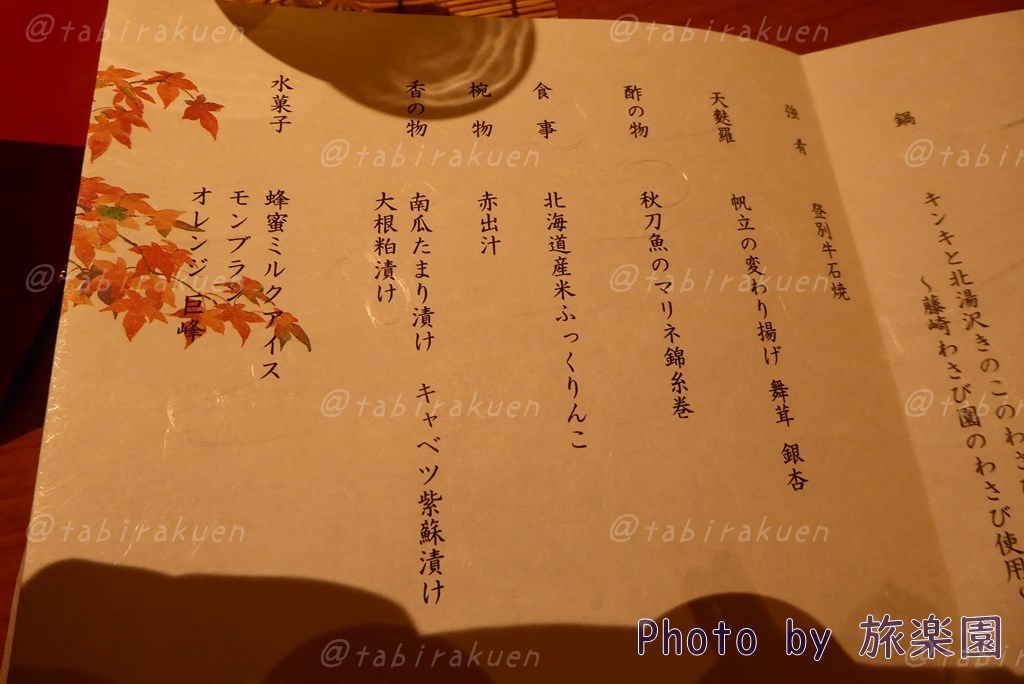 鍋
キンキと北湯沢きのこのわさ
～藤崎わさび園のわさび使用～
強肴
登別牛石焼
天麩羅
帆立の変わり揚げ 舞茸 銀杏
酢の物
秋刀魚のマリネ錦糸巻
食事
北海道産米ふっくりんこ
椀物
赤出汁
香の物
南瓜たまり漬け キャベツ紫蘇漬け
大根粕漬け
水菓子
蜂蜜ミルクアイス
モンブラン
オレンジ 巨峰
@tabirakuen @tabirakuen @tabirakuen
@tabirakuen @tabirakuen
@tabirakuen @tabirakuen @tabirakuen
@tabirakuen @tabirakuen
@tabirakuen @tabirakuen
@tabirakuen
Photo by 旅楽園